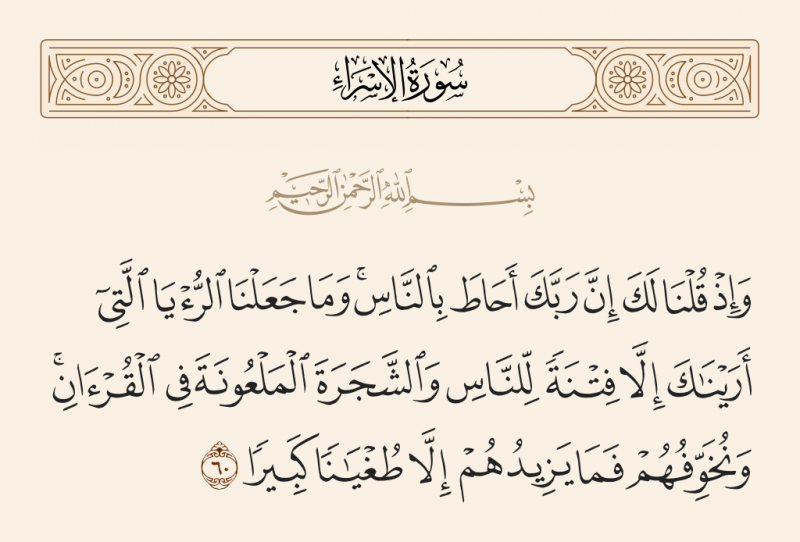 سُورَةُ الإِسْرَاءِ
بِسْمِ ٱللَّهِ ٱلرَّحْمَٰنِ ٱلرَّحِيمِ
وَإِذْ قُلْنَا لَكَ إِنَّ رَبَّكَ أَحَاطَ بِٱلنَّاسِ ۚ وَمَا جَعَلْنَا ٱلرُّءْيَا ٱلَّتِىٓ
أَرَيْنَـٰكَ إِلَّا فِتْنَةً لِّلنَّاسِ وَٱلشَّجَرَةَ ٱلْمَلْعُونَةَ فِى ٱلْقُرْءَانِ ۚ
وَنُخَوِّفُهُمْ فَمَا يَزِيدُهُمْ إِلَّا طُغْيَـٰنًا كَبِيرًا ٦٠